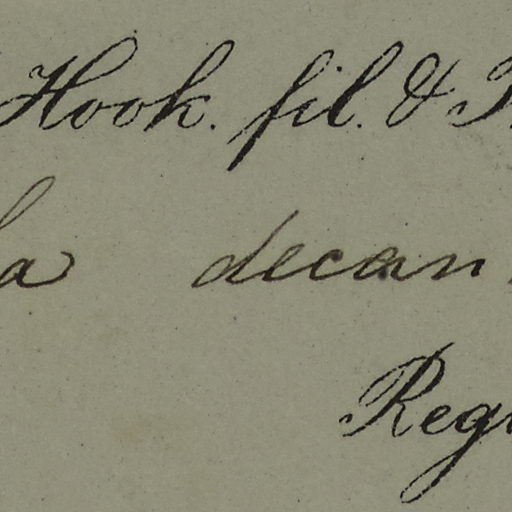 Hook. fil. &
a decan
Reg